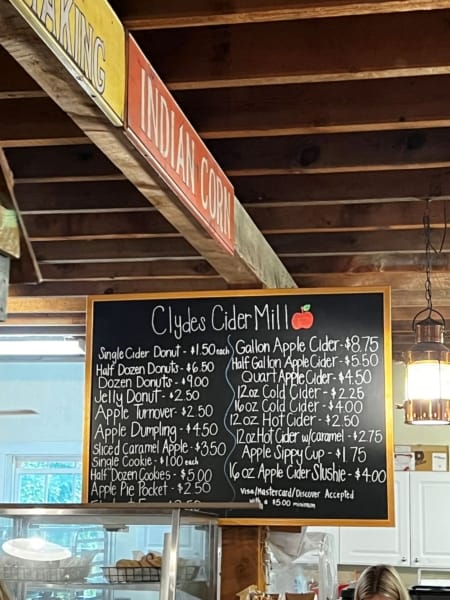 AKING
INDIAN CORN
Clydes Cider Mill
Single Cider Donut - $1.50 each
Half Dozen Donuts - $6.50
Dozen Donuts - $9.00
Jelly Donut - $2.50
Apple Turnover - $2.50
Apple Dumpling - $4.50
Sliced Caramel Apple - $3.50
Single Cookie - $1.00 each
Half Dozen Cookies - $5.00
Apple Pie Pocket - $2.50
Gallon Apple Cider - $8.75
Half Gallon Apple Cider - $5.50
Quart Apple Cider - $4.50
12oz Cold Cider - $2.25
16oz Cold Cider - $4.00
12oz Hot Cider - $2.50
12oz Hot Cider w/caramel - $2.75
Apple Sippy Cup - $1.75
16oz Apple Cider Slushie - $4.00
Visa/Mastercard/Discover Accepted
with a $5.00 minimum